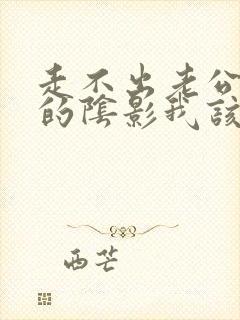 走不出老公
的陰影我該
西芒